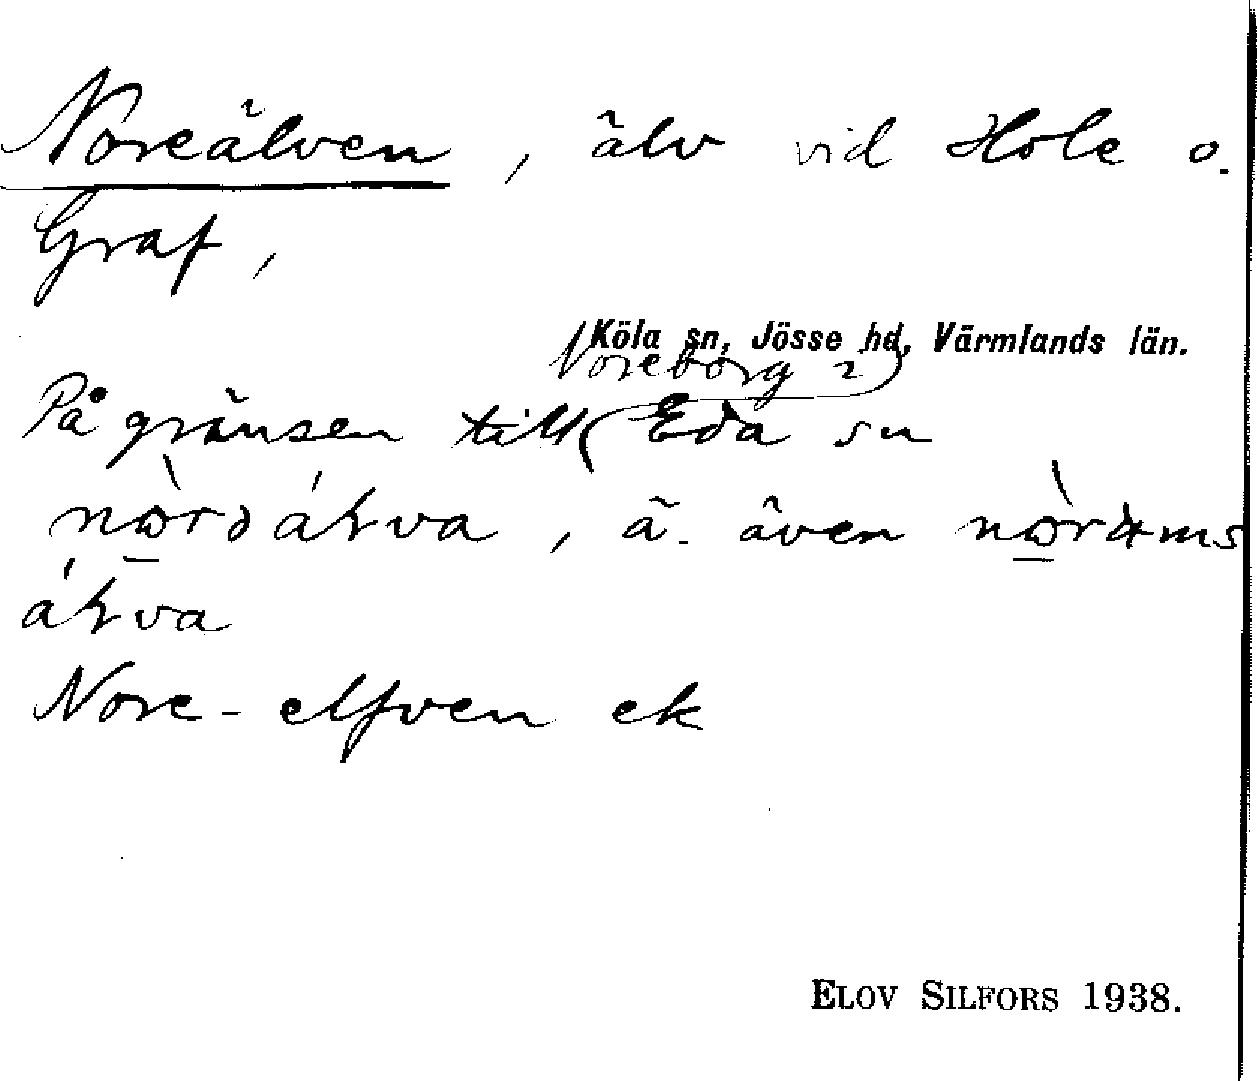 Noreälven, älv vid Hole o.
Graf,
Köla sn, Jösse hd, Värmlands län.
Noreborg
På gränsen till Eda sn
även
Nore-elfven ek
ELOV SILFORS 1938.